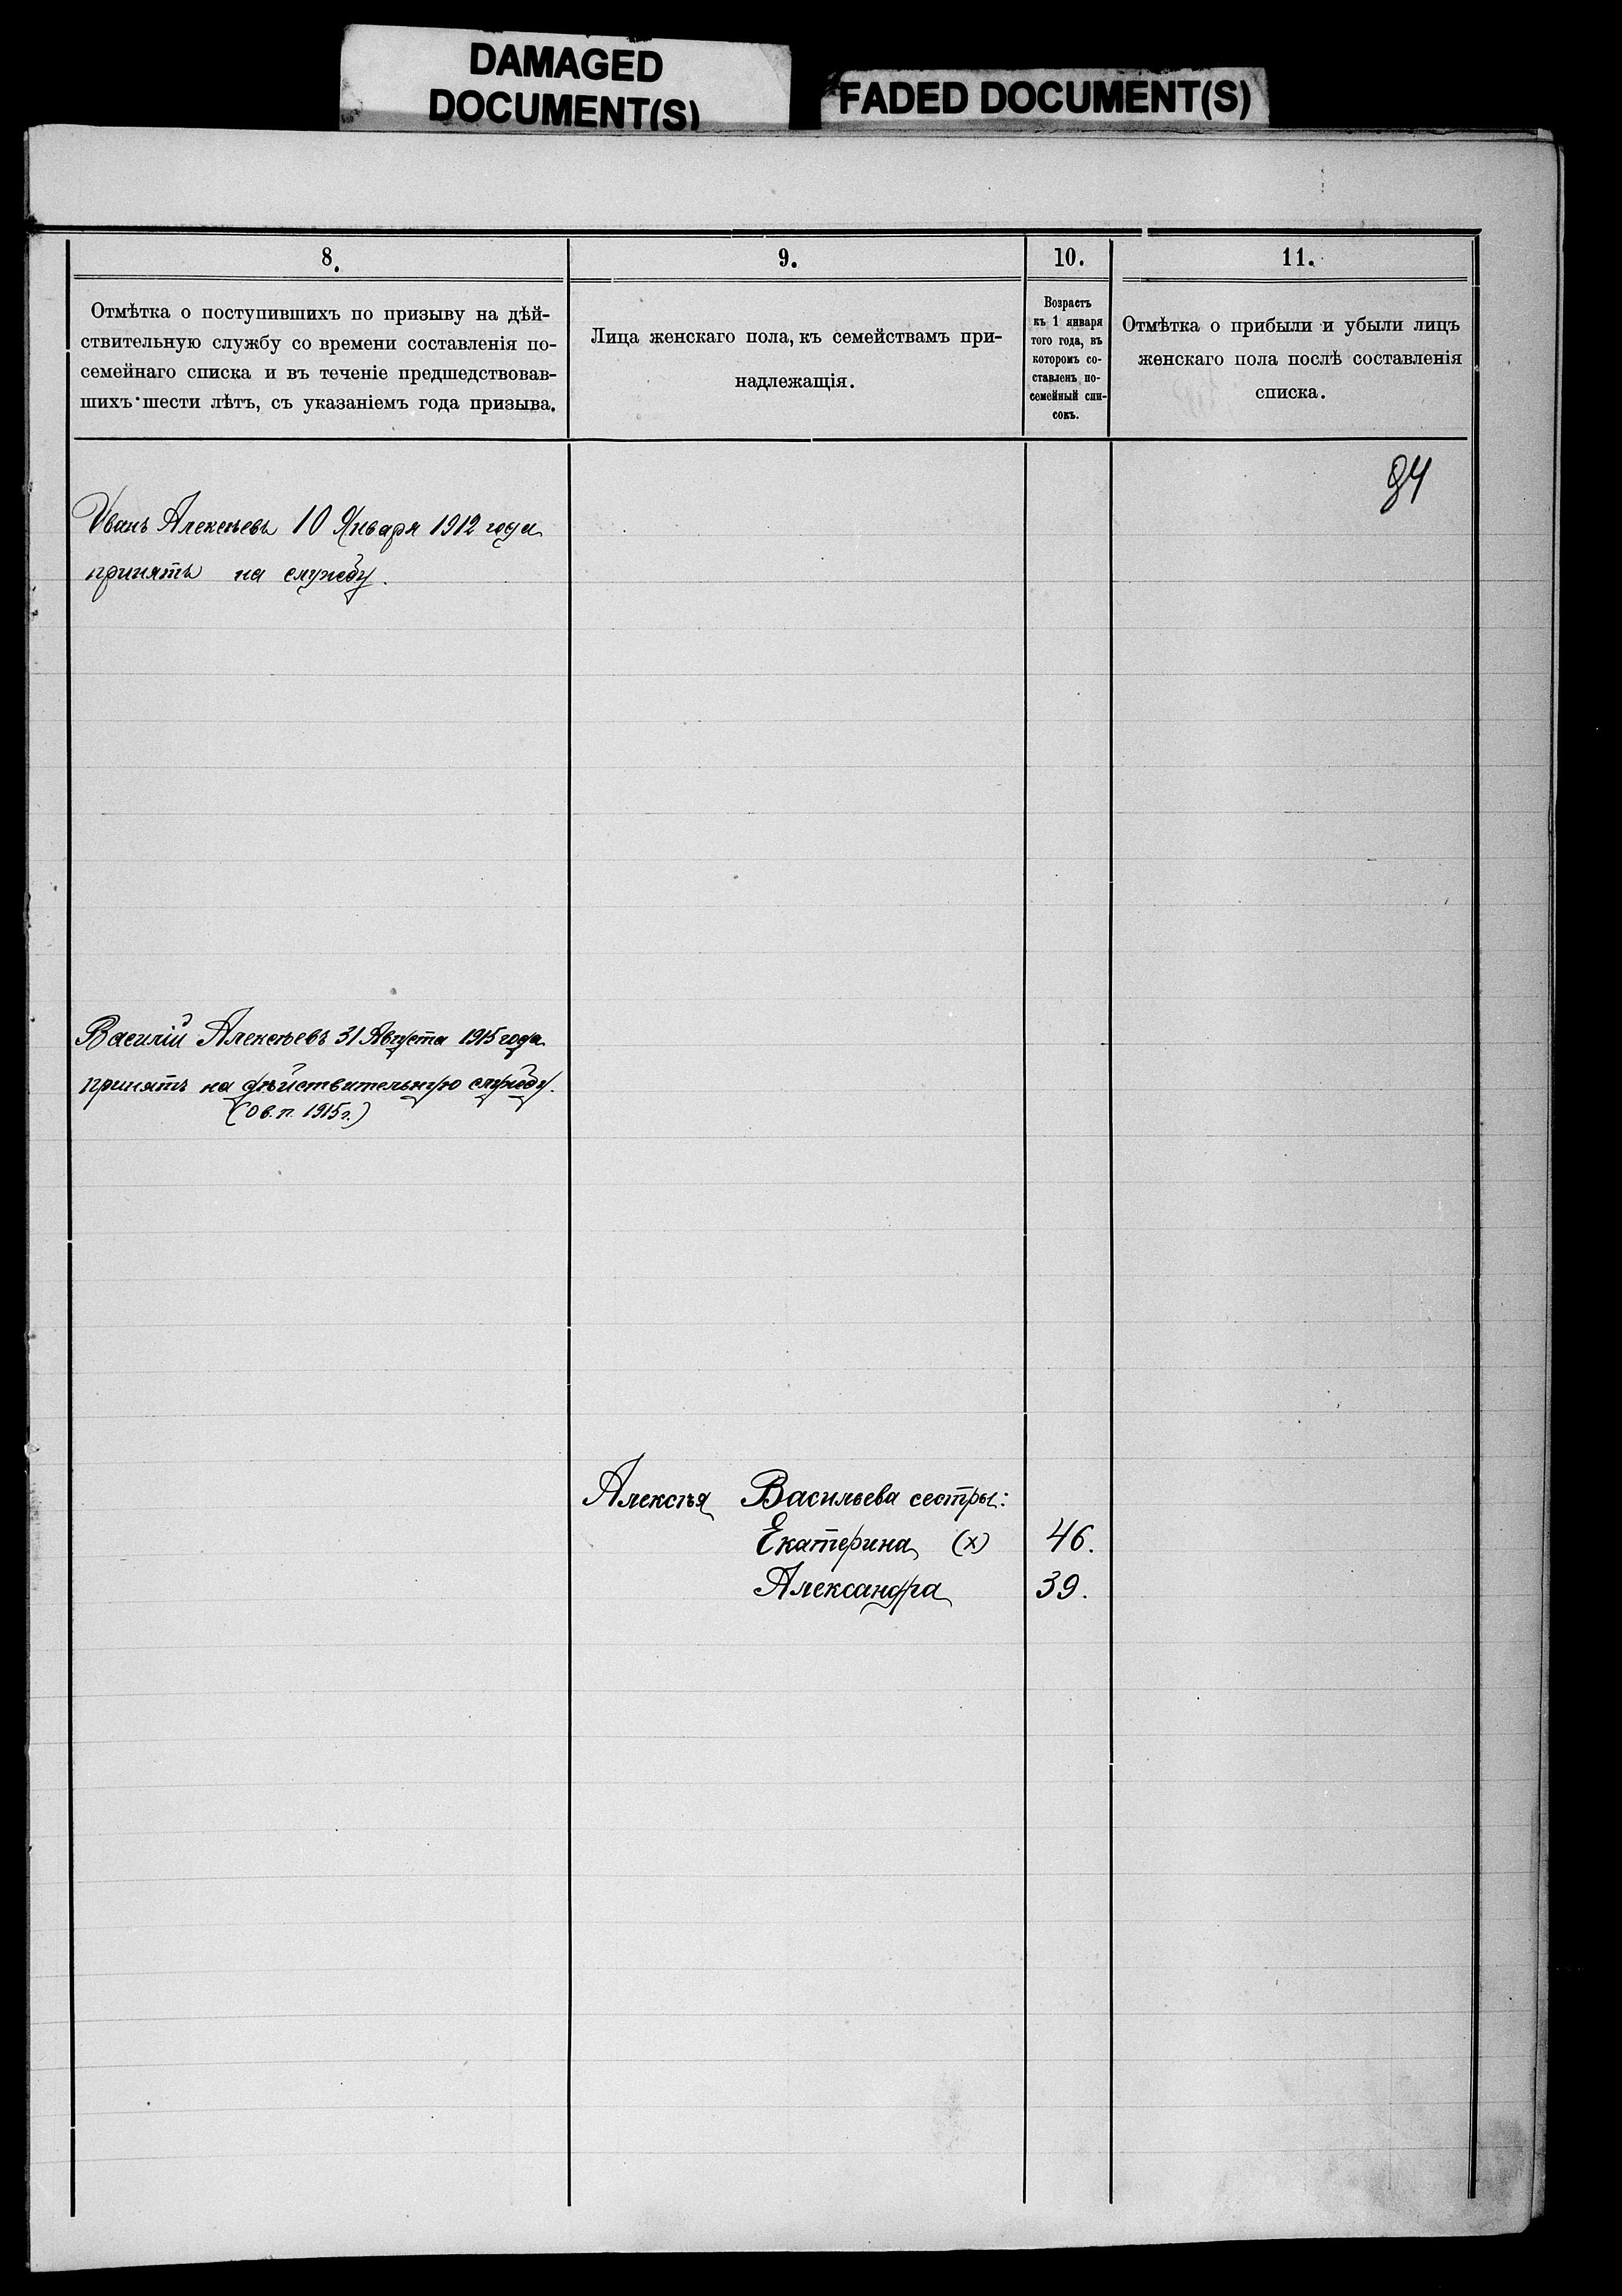 DAMAGED
DOCUMENT(S)
FADED DOCUMENT(S)
8.
9.
10.
11.
Отмѣтка о поступившихъ по призыву на дѣй-
ствительную службу со времени составленія по-
семейнаго списка и въ теченіе предшедствовав-
шихъ шести лѣтъ, съ указаніемъ года призыва.
Лица женскаго пола, къ семействамъ при-
надлежащія.
Возрастъ
къ 1 января
того года, въ
которомъ со-
ставленъ по-
семейный спи-
сокъ.
Отмѣтка о прибыли и убыли лицъ
женскаго пола послѣ составленія
списка.
84
Иванъ Алексѣевъ 10 Января 1912 года
принятъ на службу.
Василій Алексѣевъ 31 Августа 1915 года
принятъ на дѣйствительную службу.
(Ов. п. 1915 г.)
Алексѣя Васильева сестры:
Екатерина (х) 46.
Александра 39.